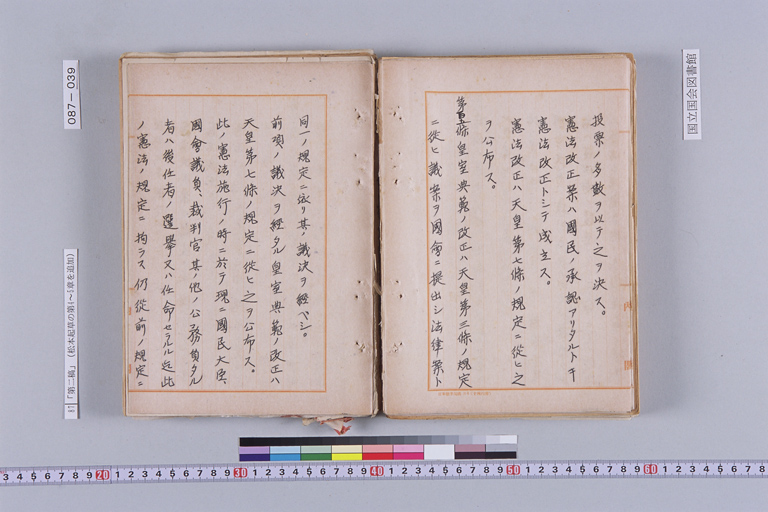 投票ノ多数ヲ以テ之ヲ決ス。
憲法改正案ハ國民ノ承認アリタルトキ
憲法改正トシテ成立ス。
憲法改正ハ天皇第七條ノ規定ニ從ヒ之
ヲ公布ス。
皇室典範ノ改正ハ天皇第三條ノ規定
ニ從ヒ議案ヲ國會ニ提出シ法律案ト
同一ノ規定ニ依リ其ノ議決ヲ經ベシ。
前項ノ議決ヲ經タル皇室典範ノ改正ハ
天皇第七條ノ規定ニ從ヒ之ヲ公布ス。
此ノ憲法施行ノ時ニ於テ現ニ國民大臣、
國會議員、裁判官其他ノ公務員タル
者ハ後任者ノ選擧又ハ任命セラルル迄此
ノ憲法ノ規定ニ拘ラス仍從前ノ規定ニ
国立国会図書館
087-039
「第二稿」(松本起草の第4~5章を追加)